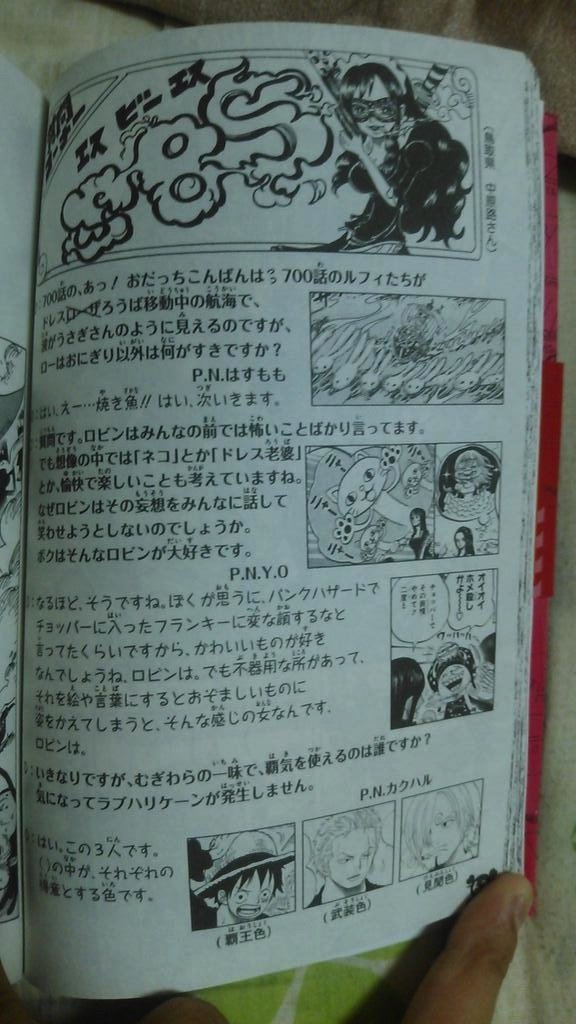 エス ビー エス
SBS
(鳥取県 中原路さん)
:700話の、あっ! おだっちこんばんはっつ 700話のルフィたちが
ドレスローザろうば移動中の航海で、
波がうさぎさんのように見えるのですが、
ローはおにぎり以外は何がすきですか?
P.N.はすもも
:はい、えー…焼き魚!! はい、次いきます。
:質問です。ロビンはみんなの前では怖いことばかり言ってます。
でも想像の中では「ネコ」とか「ドレス老婆」
とか、愉快で楽しいことも考えていますね。
なぜロビンはその妄想をみんなに話して
笑わせようとしないのでしょうか。
ボクはそんなロビンが大好きです。
P.N.Y.O
ニャー
ニャー
:なるほど、そうですね。ぼくが思うに、パンクハザードで
チョッパーに入ったフランキーに変な顔するなと
言ってたくらいですから、かわいいものが好き
なんでしょうね、ロビンは。でも不器用な所があって、
それを絵や言葉にするとおぞましいものに
姿をかえてしまうと、そんな感じの女なんです、
ロビンは。
オイオイ
ホメ殺し
かよ〜〜
チョッパーで
その表情
やめて?
二度と
:いきなりですが、むぎわらの一味で、覇気を使えるのは誰ですか?
気になってラブハリケーンが発生しません。
P.N.カクハル
:はい。この3人です。
( )の中が、それぞれの
得意とする色です。
(覇王色)
(武装色)
(見聞色)